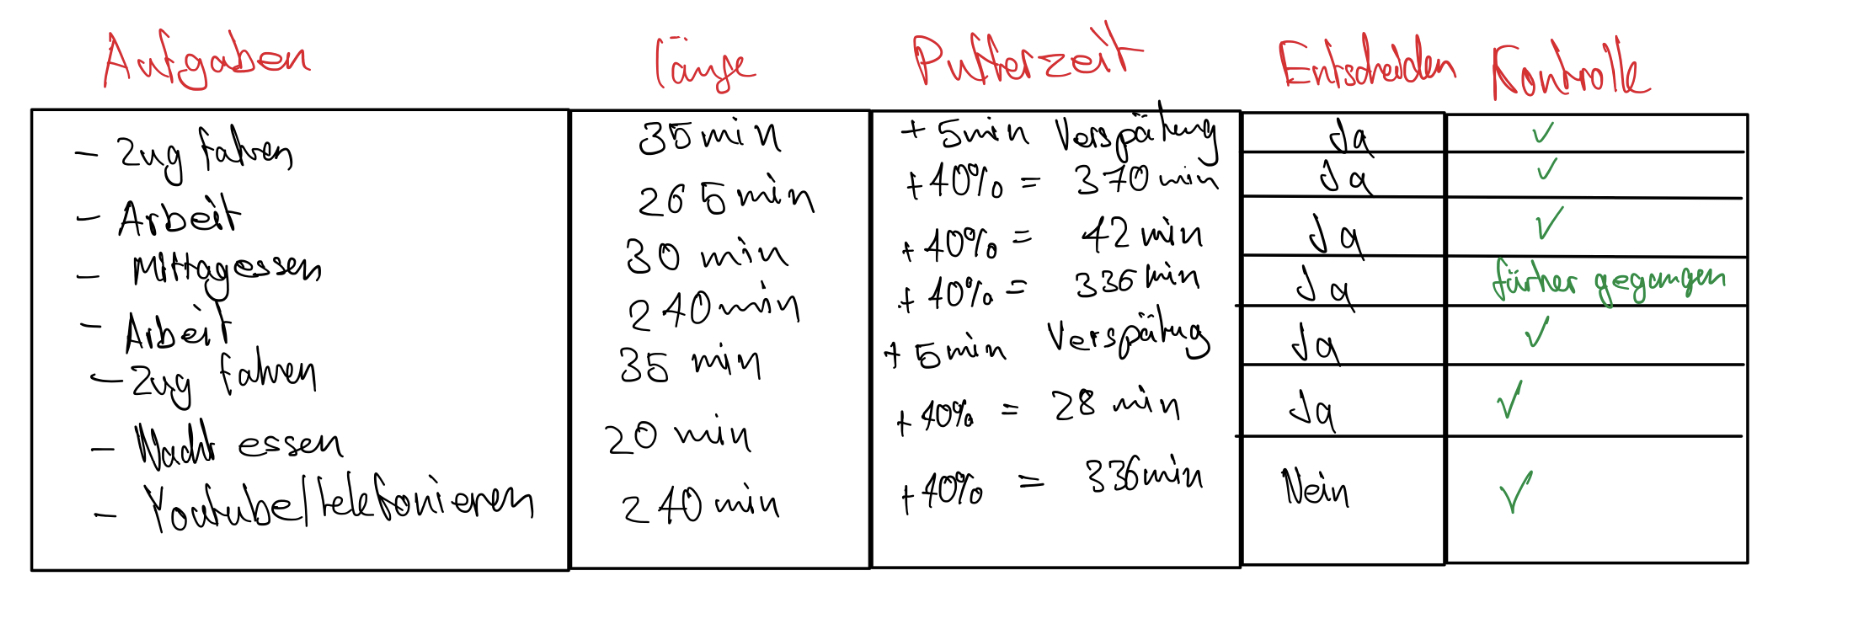 Aufgaben länge Pufferzeit Entscheiden Kontrolle
- Zug fahren 35 min + 5min Verspätung Ja ✓
- Arbeit 265 min +40% = 370 min Ja ✓
- Mittagessen 30 min +40% = 42 min Ja ✓
- Arbeit 240 min +40% = 336 min Ja fürher gegangen
- Zug fahren 35 min + 5min Verspätug Ja ✓
- Nacht essen 20 min +40% = 28 min Ja ✓
- Youtube/telefonieren 240 min +40% = 336min Nein ✓